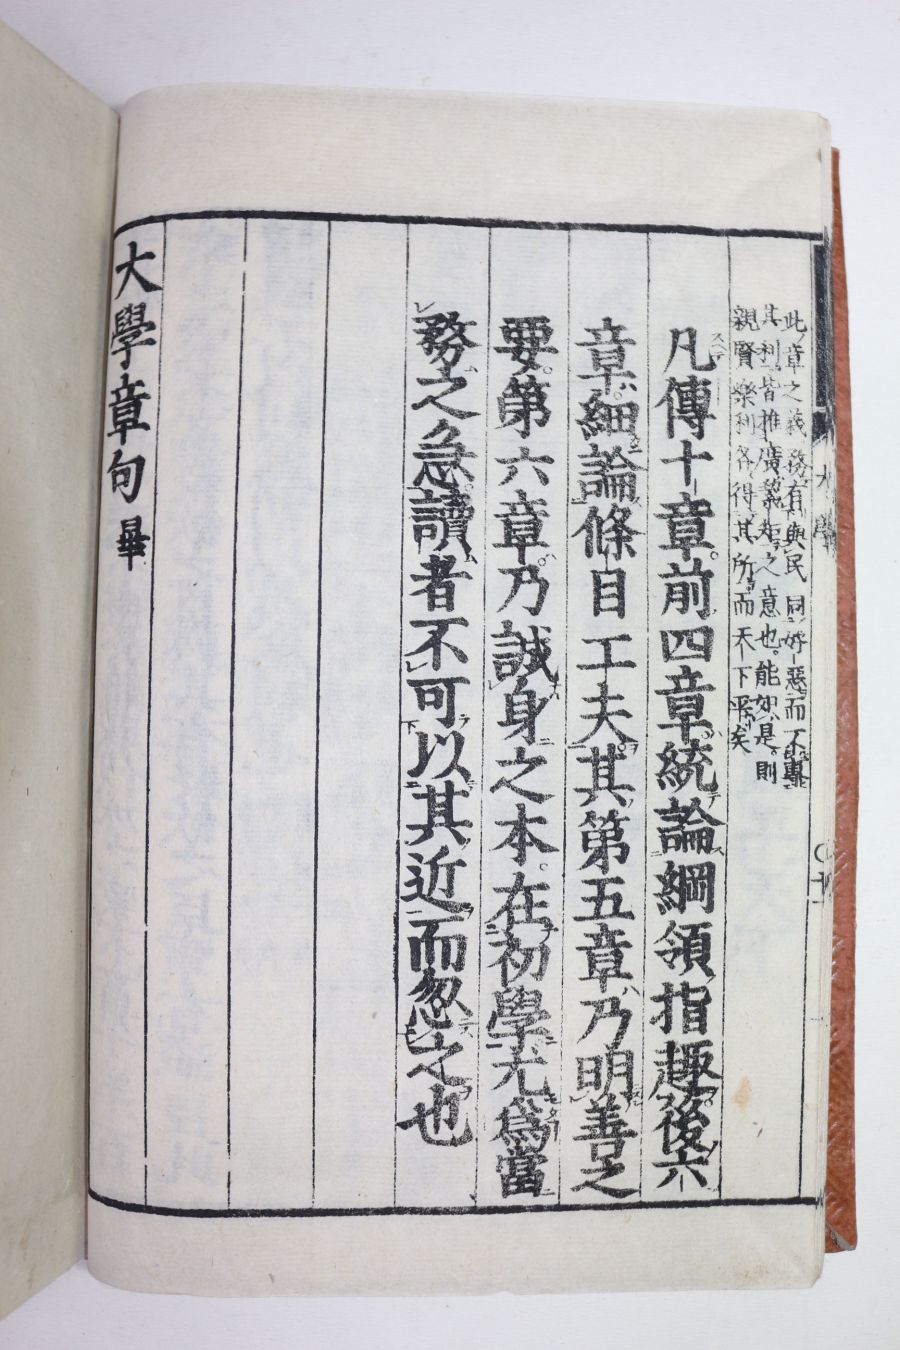 此章之義務有與民同好惡而不專
其利皆推廣絜矩之意也能如是則
親賢樂利各得其所而天下平矣
凡傳十章前四章統論綱領指趣後六
章細論條目工夫其第五章乃明善之
要第六章乃誠身之本在初學尤為當
務之急讀者不可以其近而忽之也
大學章句 畢